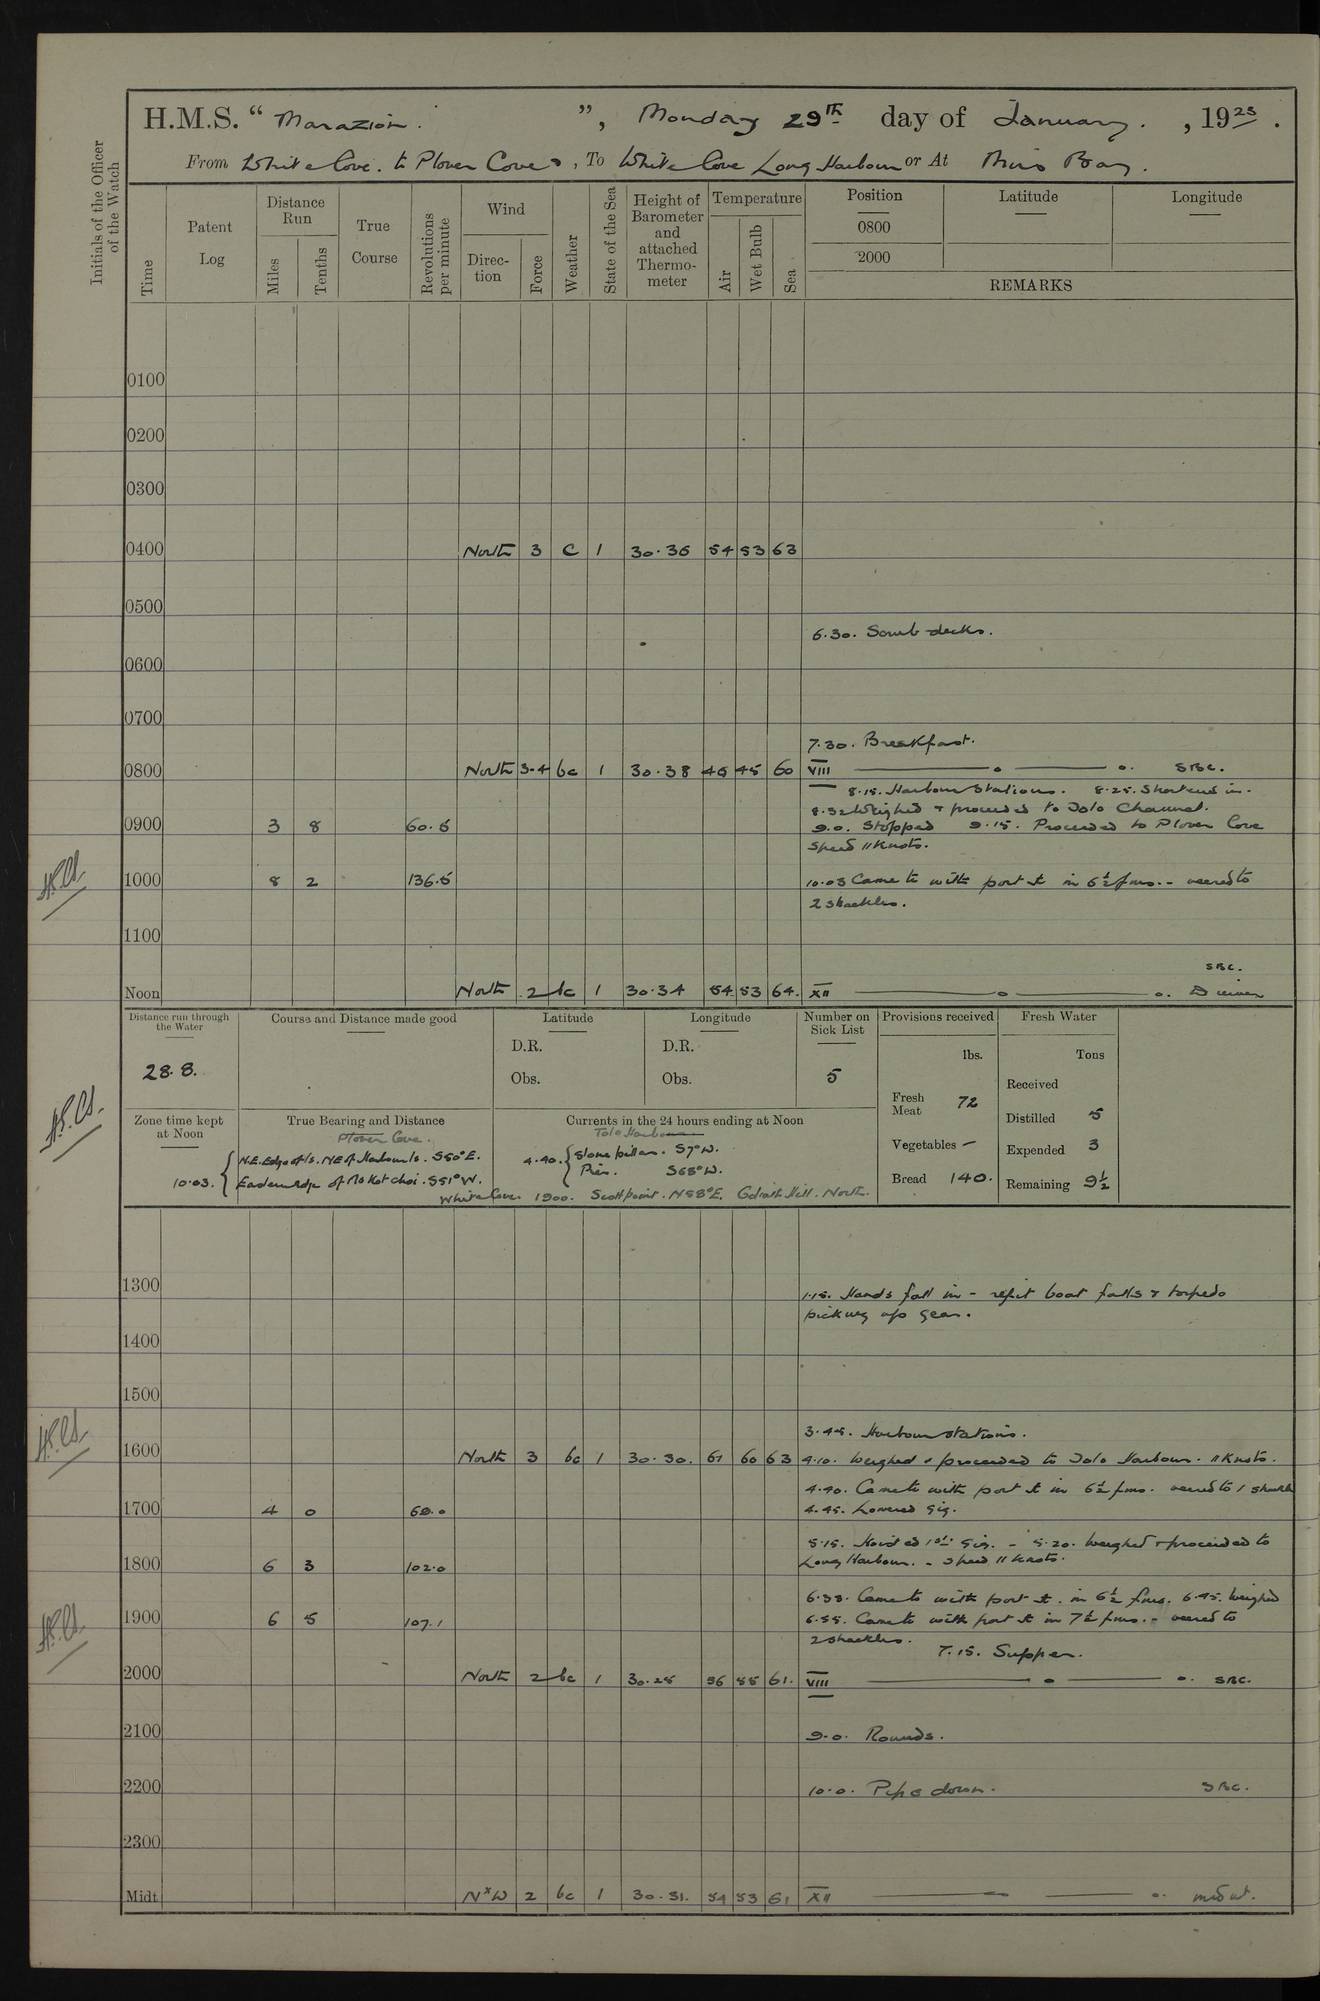 H.M.S. "Marazion.", Monday 29th day of January., 1923.
From White Cove. to Plover Cove, To White Cove Long Harbour or At Mirs Bay.
Initials of the Officer of the Watch
Time
Patent Log
Distance Run
Miles
Tenths
True Course
Revolutions per minute
Wind
Direction
Force
Weather
State of the Sea
Height of Barometer and attached Thermometer
Temperature
Air
Wet Bulb
Sea
Position
Latitude
Longitude
0800
2000
REMARKS
0100
0200
0300
0400 North 3 c 1 30.36 54 53 63
0500
6.30. Scrub decks.
0600
0700
7.30. Breakfast.
0800 North 3-4 bc 1 30.38 46 45 60 VIII SBC.
8.15. Harbour Stations. 8.25. Shortened in.
8.32 Weighed & proceeded to Tolo Channel.
0900 3 8 60.6 9.0. Stopped 9.15. Proceeded to Plover Cove
Speed 11 Knots.
1000 8 2 136.5 10.03 Came to with port ⚓ in 6½ fms. - veered to
2 shackles.
1100
SBC.
Noon North 2 bc 1 30.34 54 53 64. XII
Distance run through the Water
28.8.
Course and Distance made good
Latitude
D.R.
Obs.
Longitude
D.R.
Obs.
Number on Sick List
5
Provisions received
lbs.
Fresh Meat 72
Vegetables —
Bread 140.
Fresh Water
Tons
Received
Distilled 5
Expended 3
Remaining 9½
Zone time kept at Noon
True Bearing and Distance
Plover Cove.
10.03. { N.E. Edge of Is. NE of Harbour Is. S50°E.
Eastern Edge of Ma Kot choi. S51°W.
Currents in the 24 hours ending at Noon
Tolo Harbour
4.40. { Stone pillar. S7°W.
Pier. S68°W.
White Cove 1900. Scott point. N58°E. Goliath Hill. North.
1300
1.15. Hands fall in - refit boat falls & torpedo
picking up gear.
1400
1500
3.45. Harbour stations.
1600 North 3 bc 1 30.30. 61 60 63 4.10. Weighed & proceeded to Tolo Harbour. 11 Knots.
4.40. Came to with port ⚓ in 6½ fms. veered to 1 shackle
1700 4 0 4.45. Lowered gig.
5.15. Hoisted 1st gig. - 5.20. Weighed & proceeded to
1800 6 3 102.0 Long Harbour. - Speed 11 Knots.
6.38. Came to with port ⚓. in 6½ fms. 6.45. Weighed
1900 6 5 107.1 6.55. Came to with port ⚓ in 7½ fms. - veered to
2 shackles.
7.15. Supper.
2000 North 2 bc 1 30.28 56 55 61. VIII SBC.
2100 9.0. Rounds.
2200 10.0. Pipe down. SBC.
2300
Midt. N×W 2 bc 1 30.31. 54 53 61 XII